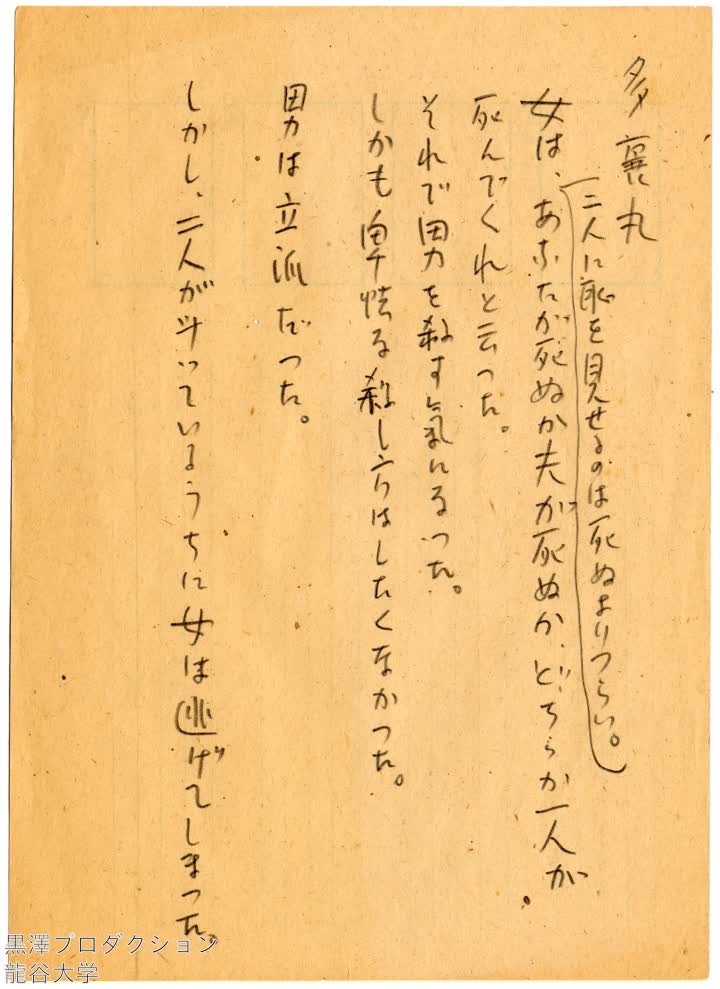 多襄丸
二人に恥を見せるのは死ぬよりつらい。
女は、あなたが死ぬか夫が死ぬか、どちらか一人が
死んでくれと云つた。
それで男を殺す氣になつた。
しかも卑怯な殺し方はしたくなかつた。
男は立派だつた。
しかし、二人が斗っているうちに女は逃げてしまつた。
黒澤プロダクション
龍谷大学